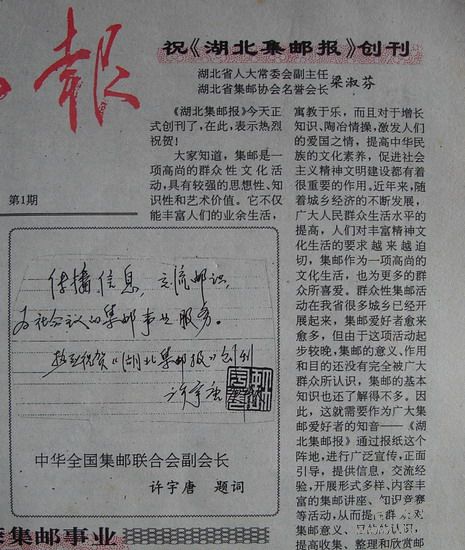 报
第1期
祝《湖北集邮报》创刊
湖北省人大常委会副主任
湖北省集邮协会名誉会长
梁淑芬
《湖北集邮报》今天正
式创刊了,在此,表示热烈
祝贺!
大家知道,集邮是一
项高尚的群众性文化活
动,具有较强的思想性、知
识性和艺术价值。它不仅
能丰富人们的业余生活,
寓教于乐,而且对于增长
知识、陶冶情操,激发人们
的爱国之情,提高中华民
族的文化素养,促进社会
主义精神文明建设都有着
很重要的作用。近年来,随
着城乡经济的不断发展,
广大人民群众生活水平的
提高,人们对丰富精神文
化生活的要求越来越迫
切,集邮作为一项高尚的
文化生活,也为更多的群
众所喜爱。群众性集邮活
动在我省很多城乡已经开
展起来,集邮爱好者愈来
愈多,但由于这项活动起
步较晚,集邮的意义、作用
和目的还没有完全被广大
群众所认识,集邮的基本
知识也还了解得不多。因
此,这就需要作为广大集
邮爱好者的知音——《湖
北集邮报》通过报纸这个
阵地,进行广泛宣传,正面
引导,提供信息,交流经
验,开展形式多样、内容丰
富的集邮讲座、知识竞赛
等活动,从而提高群众对
集邮意义、目的的认识,
提高收集、整理和欣赏邮
传播信息,交流邮识,
为社会认的集邮事业服务。
热烈祝贺《湖北集邮报》创刊
许宇唐
中华全国集邮联合会副会长
许宇唐 题词
集邮事业